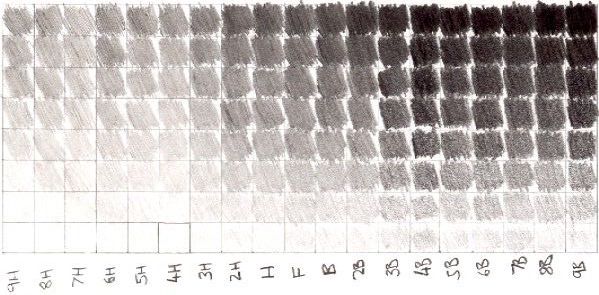 9H 8H 7H 6H 5H 4H 3H 2H H F B 2B 3B 4B 5B 6B 7B 8B 9B